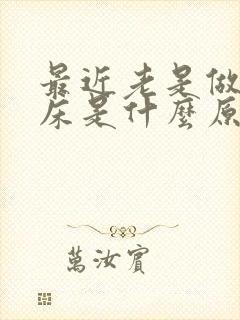 最近老是做
床是什麼原
萬汝賓